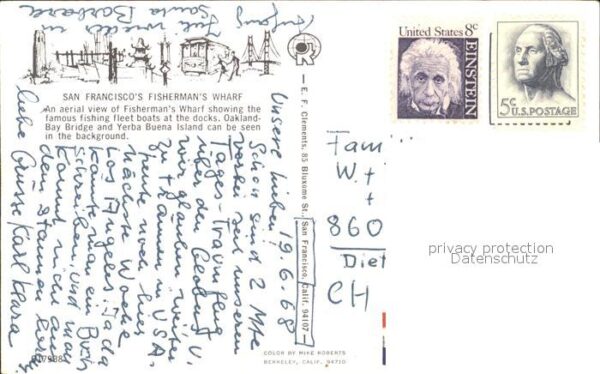 United States 8c
EINSTEIN
5c
U.S. POSTAGE
SAN FRANCISCO'S FISHERMAN'S WHARF
An aerial view of Fisherman's Wharf showing the
famous fishing fleet boats at the docks. Oakland-
Bay Bridge and Yerba Buena Island can be seen
in the background.
E. F. Clements, 85 Bluxome St., San Francisco, Calif. 94107
19.6.68
Unsere Lieben!
Schon sind 2 Mte
seit unserem
Tages-Traumflug
über den
wir glauben weiter
zu träumen in USA.
heute noch hier
nächste Woche
Los Angeles.
könnte man ein Buch
schreiben, und man
kommt nicht aus
dem Staunen heraus.
liebe Grüsse Karl Klara
Santa Barbara
Fam
W.
860
Diet
CH
privacy protection
Datenschutz
COLOR BY MIKE ROBERTS
BERKELEY, CAL. 94710